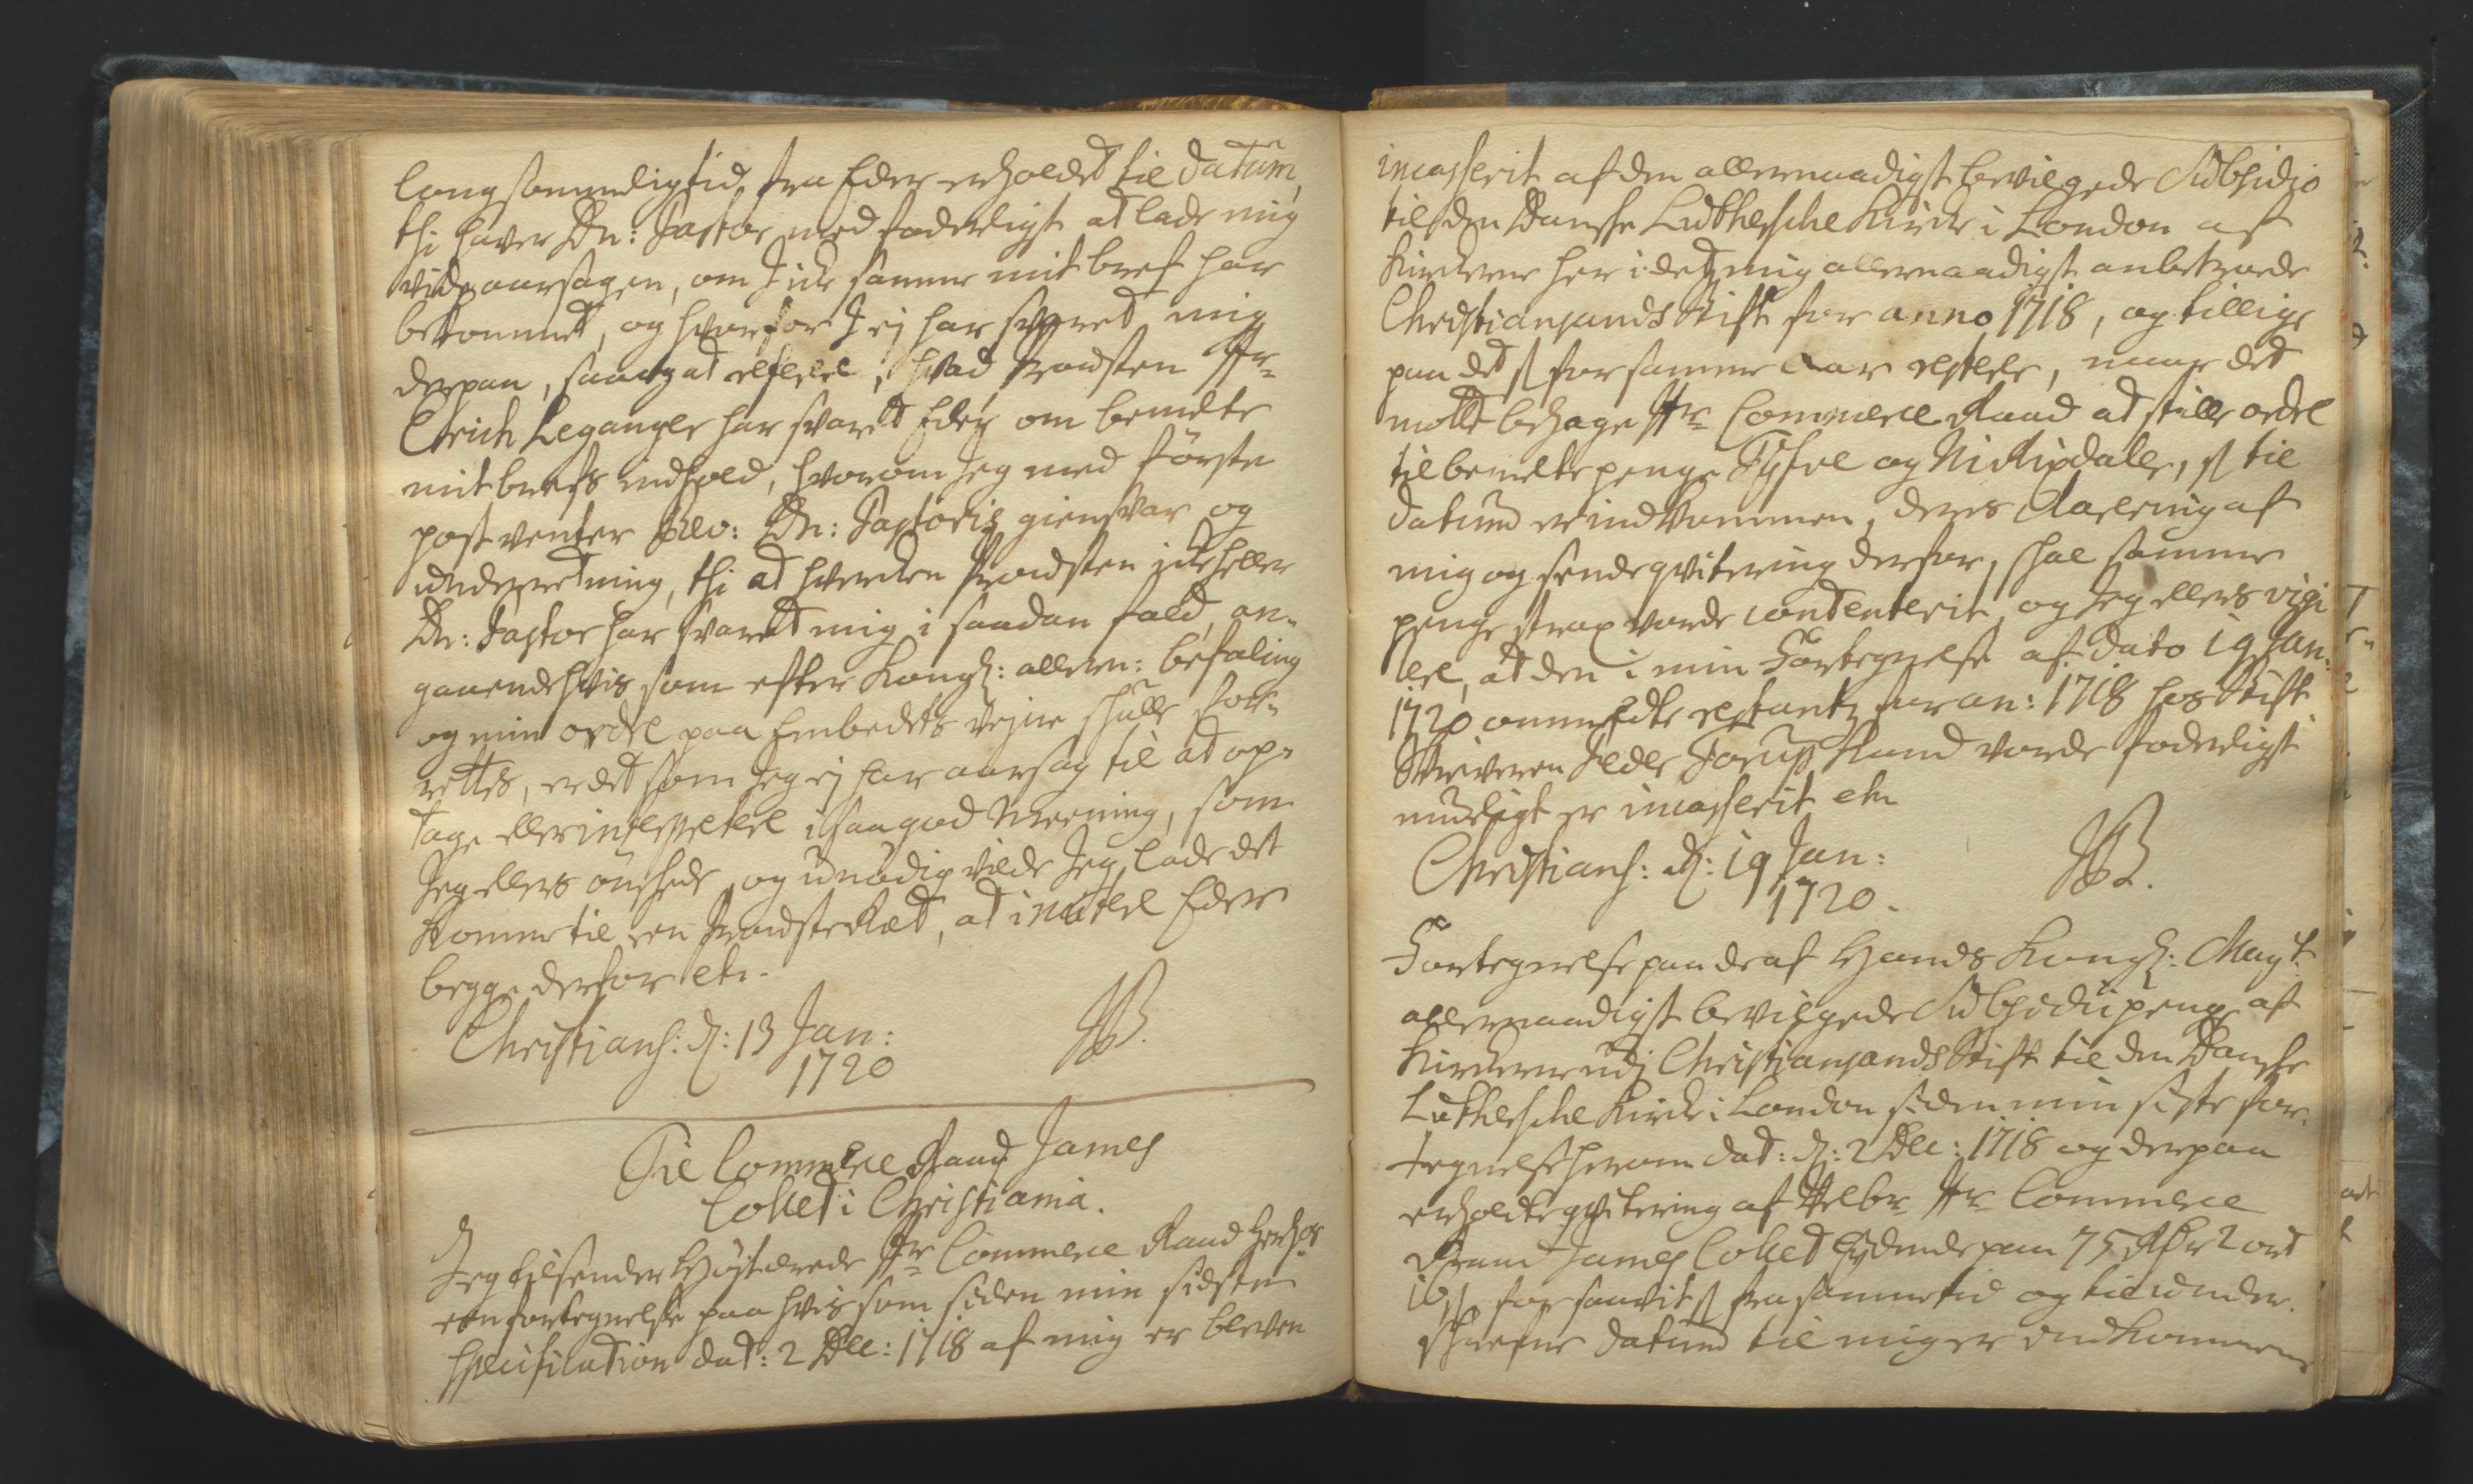 langsommelig tid fra Eder erholdet til datum,
thi haver Dn: Pastor med forderligst at lade mig
vide aarsagen, om I icke samme mit bref har
bekommet, og hvorfor I ej har svaret mig
derpaa, saa og at referere, hvad Prousten Hr
Chrich Leganger har svaret Eder om bemelte
mit brefs indhold, hvorom Jeg med förste
post venter Rev: Dn: Pastoris giensvar og
underretning, thi at hverken Prousten icke heller
Dn: Pastor har svaret mig i saadan fald, an-
gaaende hvis som efter Kongl: allern: befaling
og min ordre paa Embedets vejne skulle for-
rettes, er det som Jeg ej har aarsag til at op-
tage eller interpretere i saa god Meening, som
Jeg ellers önskede, og unödig vilde Jeg lade det
komme til en Prousteræt, at incitere Eder
begge derfor etc.
Christians: d: 13 Jan:
1720
JB.
Til Commerce Raad James
Collet i Christiania.
Jeg tilsender Höjtærede Hr Commerce Raad herhos
een fortegnelse paa hvis som siden min sidste
specification dat: 2 Dec: 1718 af mig er bleven
incasserit af den allernaadigst bevilgede Subsidio
til den Danske Lutherske Kircke i London af
Kirckerne her i det mig allernaadigst anbetroede
Christiansands Stift for anno 1718, og tillige
paa det s for samme Aar restere, naar det
motte behage Hr Commerce Raad at stille ordre
til bemelte penge Tysve og Ni Rixdaler, s til
datum er indkommen, deres Annering af
mig og sende qvitering derfor, skal samme
penge strax vorde contenterit, og Jeg ellers vigi
lere, at den i min Fortegnelse af dato 19 Jan:
1720 ommelte restantz for an: 1718 hos Stift
Skriveren Peder Torup kand vorde forderligst
mueligt er incasserit etc
Christians: d: 19 Jan:
1720.
JB.
Fortegnelse paa de af Hands Kongl: Mayt:
allernaadigst bevilgede Subsidii penge af
Kirckerne udj Christiansands Stift til den Danske
Lutherske Kircke i London siden min sidste for-
tegnelse herom dat: d: 2 Dec: 1718 og derpaa
erholdte qvitering af Velbr Hr Commerce
Raad James Collet lydende paa 75 Rdr 2 ort
16 s for saavit s fra samme tid og til under-
skrefne datum til mig er indkommen